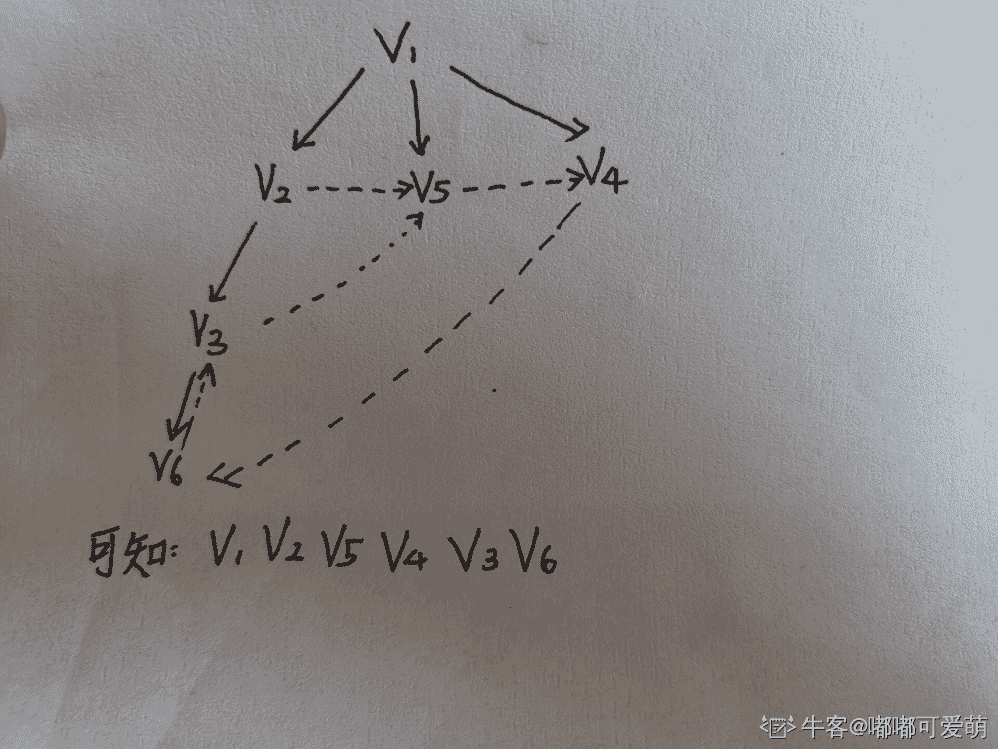 V₁
V₂ V₅ V₄
V₃
V₆
可知: V₁ V₂ V₅ V₄ V₃ V₆
牛客@嘟嘟可爱萌